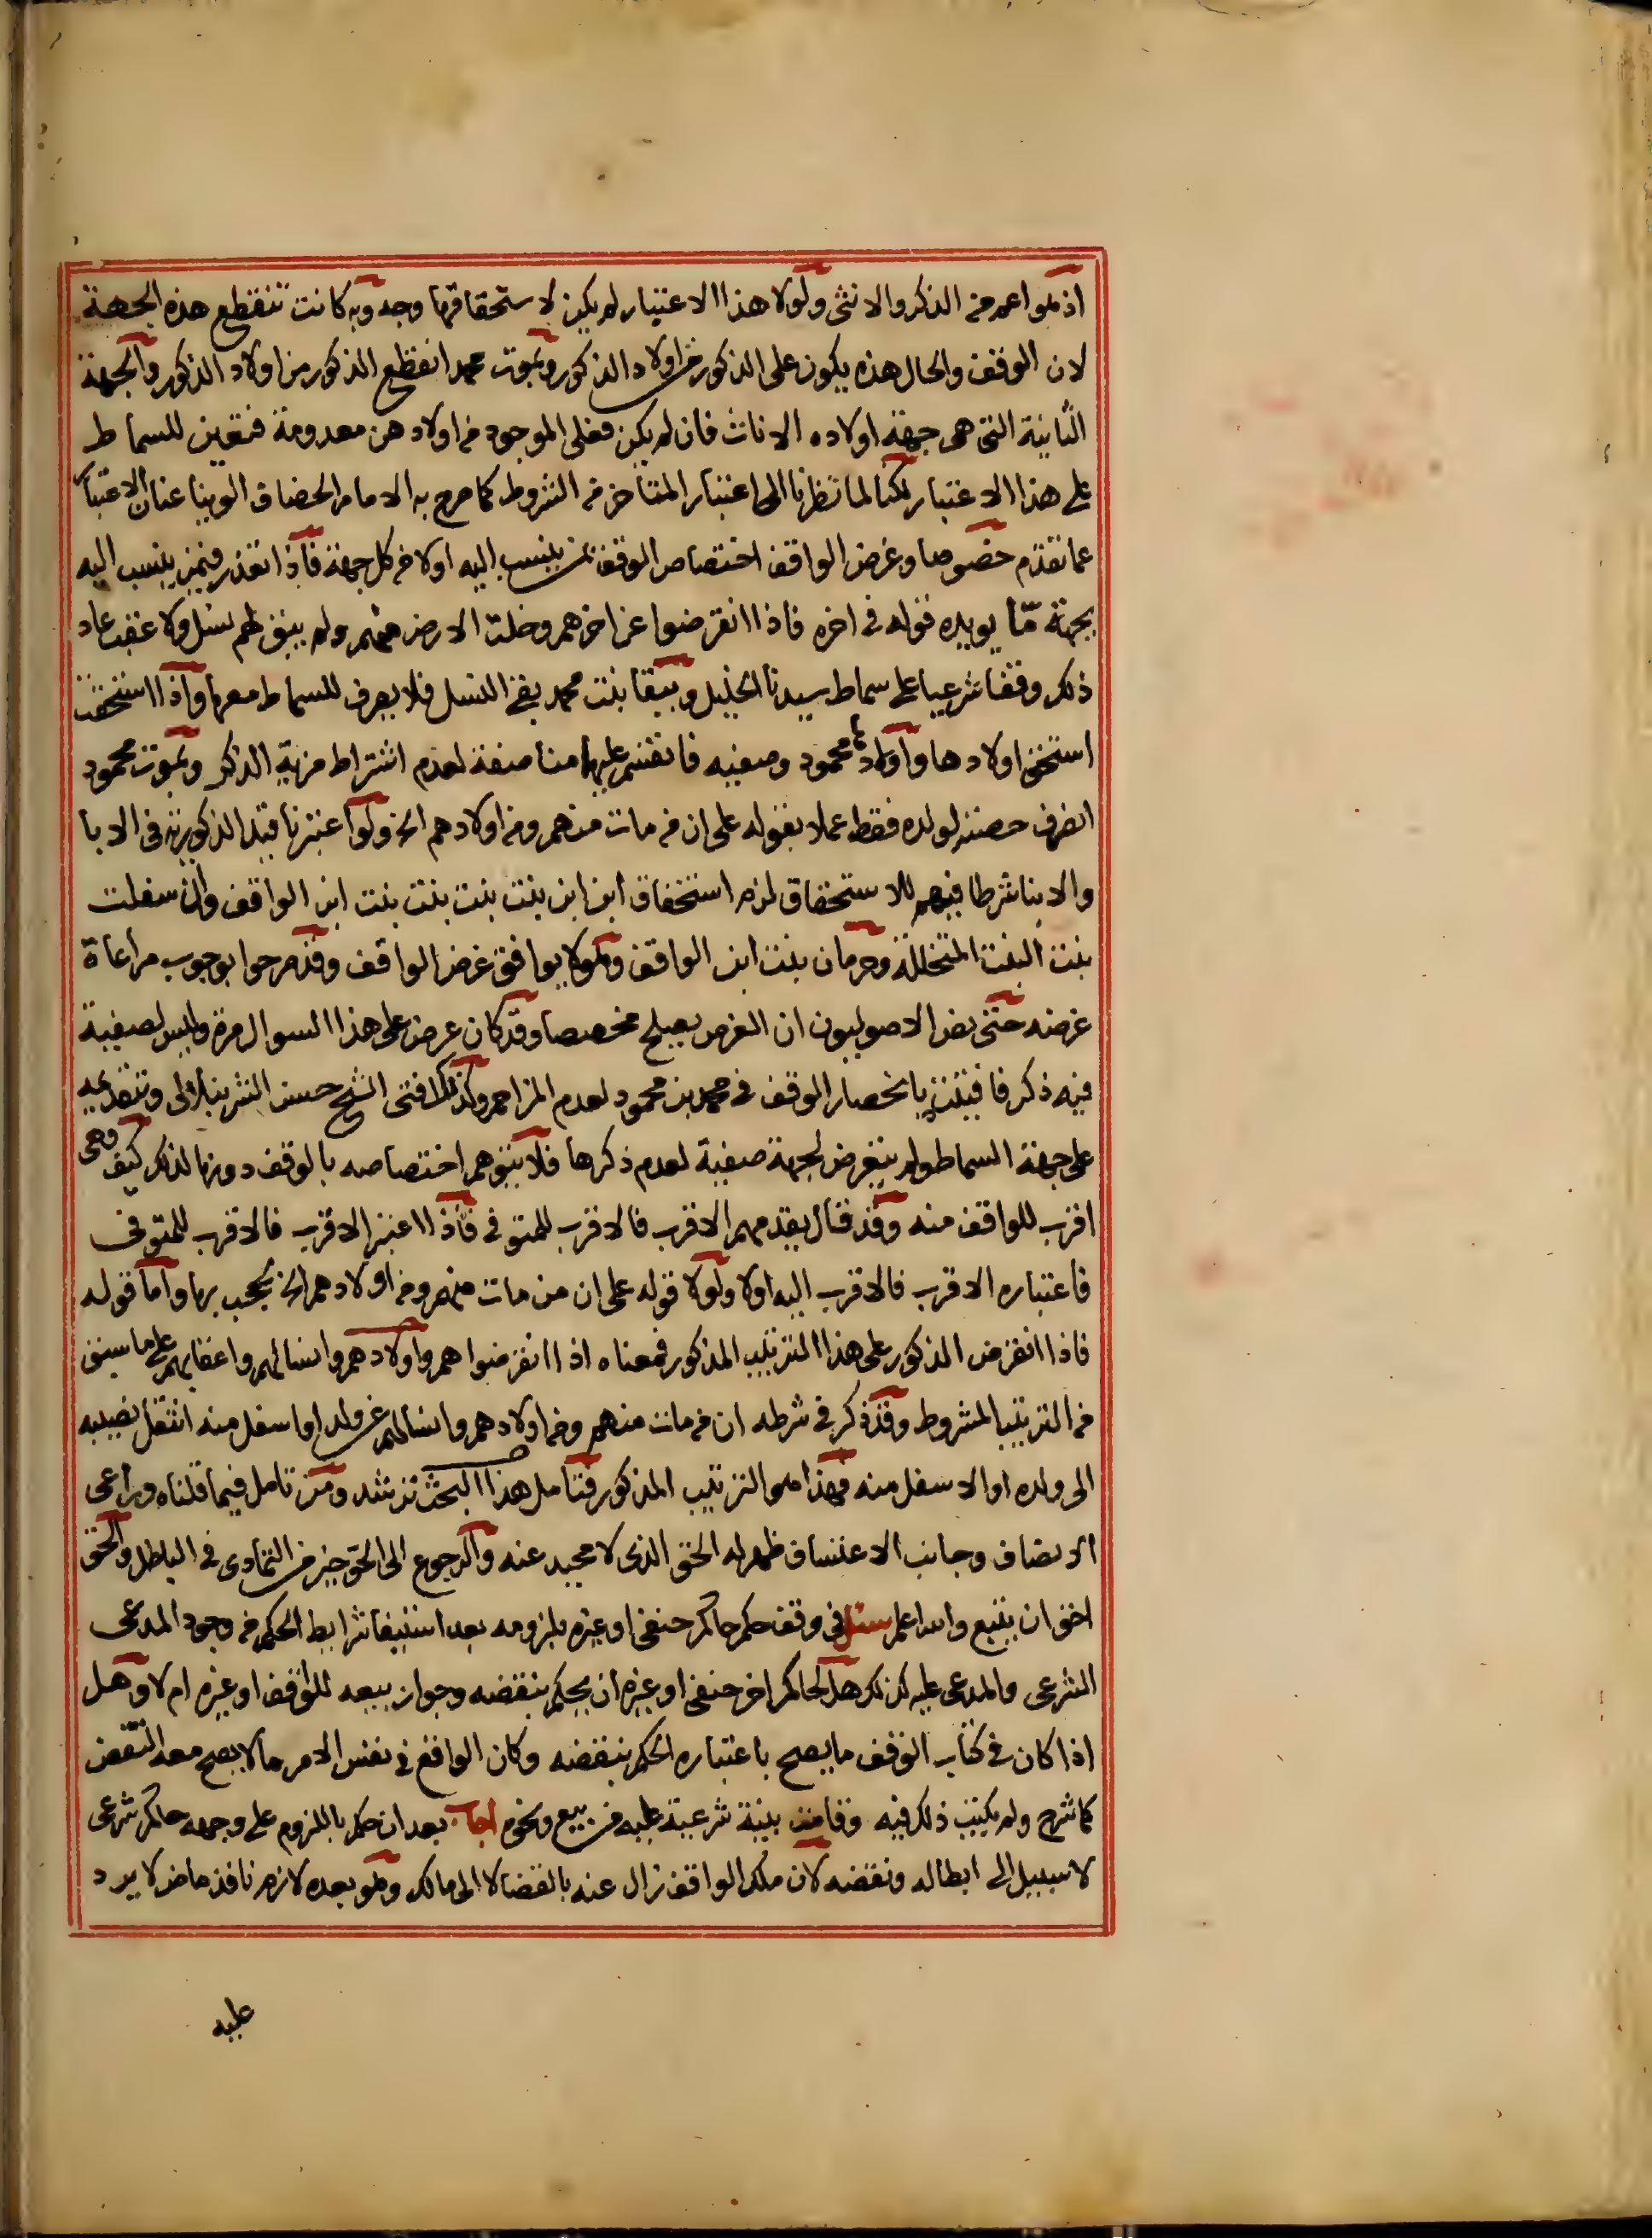 اذ هو اعم من الذكر والانثى ولولا هذا الاعتبار لم يكن لاستحقاقها وجه وبه كانت تنقطع هذه الجهة
لان الوقف والحال هذه يكون على الذكور من اولاد الذكور وبموت محمد انقطع الذكور من اولاد الذكور والجهة
الثانية التى هى جهة اولاده الاناث فان لم يكن فعلى الموجود من اولادهن معدومة فتعين للسماط
على هذا الاعتبار لكنا لما نظرنا الى اعتبار المتاخر من الشروط كما صرح به الامام الخصاف الوينا عنان الاعتبار
عما تقدم خصوصا وغرض الواقف اختصاص الوقف بمن ينسب اليه اولا من كل جهة فاذا تعذر فبمن ينسب اليه
بجهة مّا يويده قوله فى اخره فاذا انقرضوا عن اخرهم وخلت الارض منهم ولم يبق لهم نسل ولا عقب عاد
ذلك وقفا شرعيا على سماط سيدنا الخليل وببقا بنت محمد بقى النسل فلا يصرف للسماط معها واذا استحقت
استحق اولادها واولاد محمود وصفيه فانقسم عليهما مناصفة لعدم اشتراط مزية الذكر وبموت محمود
انصرف حصته لولده فقط عملا بقوله على ان من مات منهم ومن اولادهم الخ ولو اعتبرنا قيد الذكورية فى الابا
والابنا شرطا فيهم للاستحقاق لزم استحقاق ابن ابن بنت بنت بنت بنت ابن الواقف وان سفلت
بنت البنت المتخللة وحرمان بنت ابن الواقف وهو لا يوافق غرض الواقف وقد صرحوا بوجوب مراعاة
غرضه حتى نص الاصوليون ان الغرض يصلح مخصصا وقد كان عرض على هذا السوال مرة وليس لصفية
فيه ذكر فافتيت بانحصار الوقف فى محمد بن محمود لعدم المزاحم وكذلك افتى الشيخ حسن الشرنبلالى وتقديمه
على جهة السماط ولم يتعرض لجهة صفية لعدم ذكرها فلا يتوهم اختصاصه بالوقف دونها لذلك كيف وهى
اقرب للواقف منه وقد قال يقدم منهم الاقرب فالاقرب للمتوفى فاذا اعتبر الاقرب فالاقرب للمتوفى
فاعتباره الاقرب فالاقرب اليه اولا ولولا قوله على ان من مات منهم ومن اولادهم الخ لحجب بها واما قوله
فاذا انقرض المذكور على هذا الترتيب المذكور فمعناه اذا انقرضوا هم واولادهم وانسالهم واعقابهم على ما سبق
من الترتيب المشروط وقد ذكر فى شرطه ان من مات منهم ومن اولادهم وانسالهم عن ولد او اسفل منه انتقل نصيبه
الى ولده او الاسفل منه فهذا هو الترتيب المذكور فتامل هذا البحث ترشد ومن تامل فيما قلناه وراعى
الانصاف وجانب الاعتساف ظهر له الحق الذى لا محيد عنه والرجوع الى الحق خير من التمادى فى الباطل والحق
احق ان يتبع والله اعلم سئل فى وقف حكم حاكم حنفى او غيره بلزومه بعد استيفا شرايط الحكم من وجود المدعى
الشرعى والمدعى عليه كذلك هل لحاكم اخر حنفى او غيره ان يحكم بنقضه وجواز بيعه للواقف او غيره ام لا وهل
اذا كان فى كتاب الوقف ما يصح باعتباره الحكم بنقضه وكان الواقع فى نفس الامر ما لا يصح معه النقض
كما شرح ولم يكتب ذلك فيه وقامت بينة شرعية عليه من بيع ونحوه اجاب بعد ان حكم باللزوم على وجهه حاكم شرعى
لا سبيل الى ابطاله ونقضه لان ملك الواقف زال عنه بالقضا لا الى مالك وهو بعده لازم نافذ ماض لا يرد
عليه